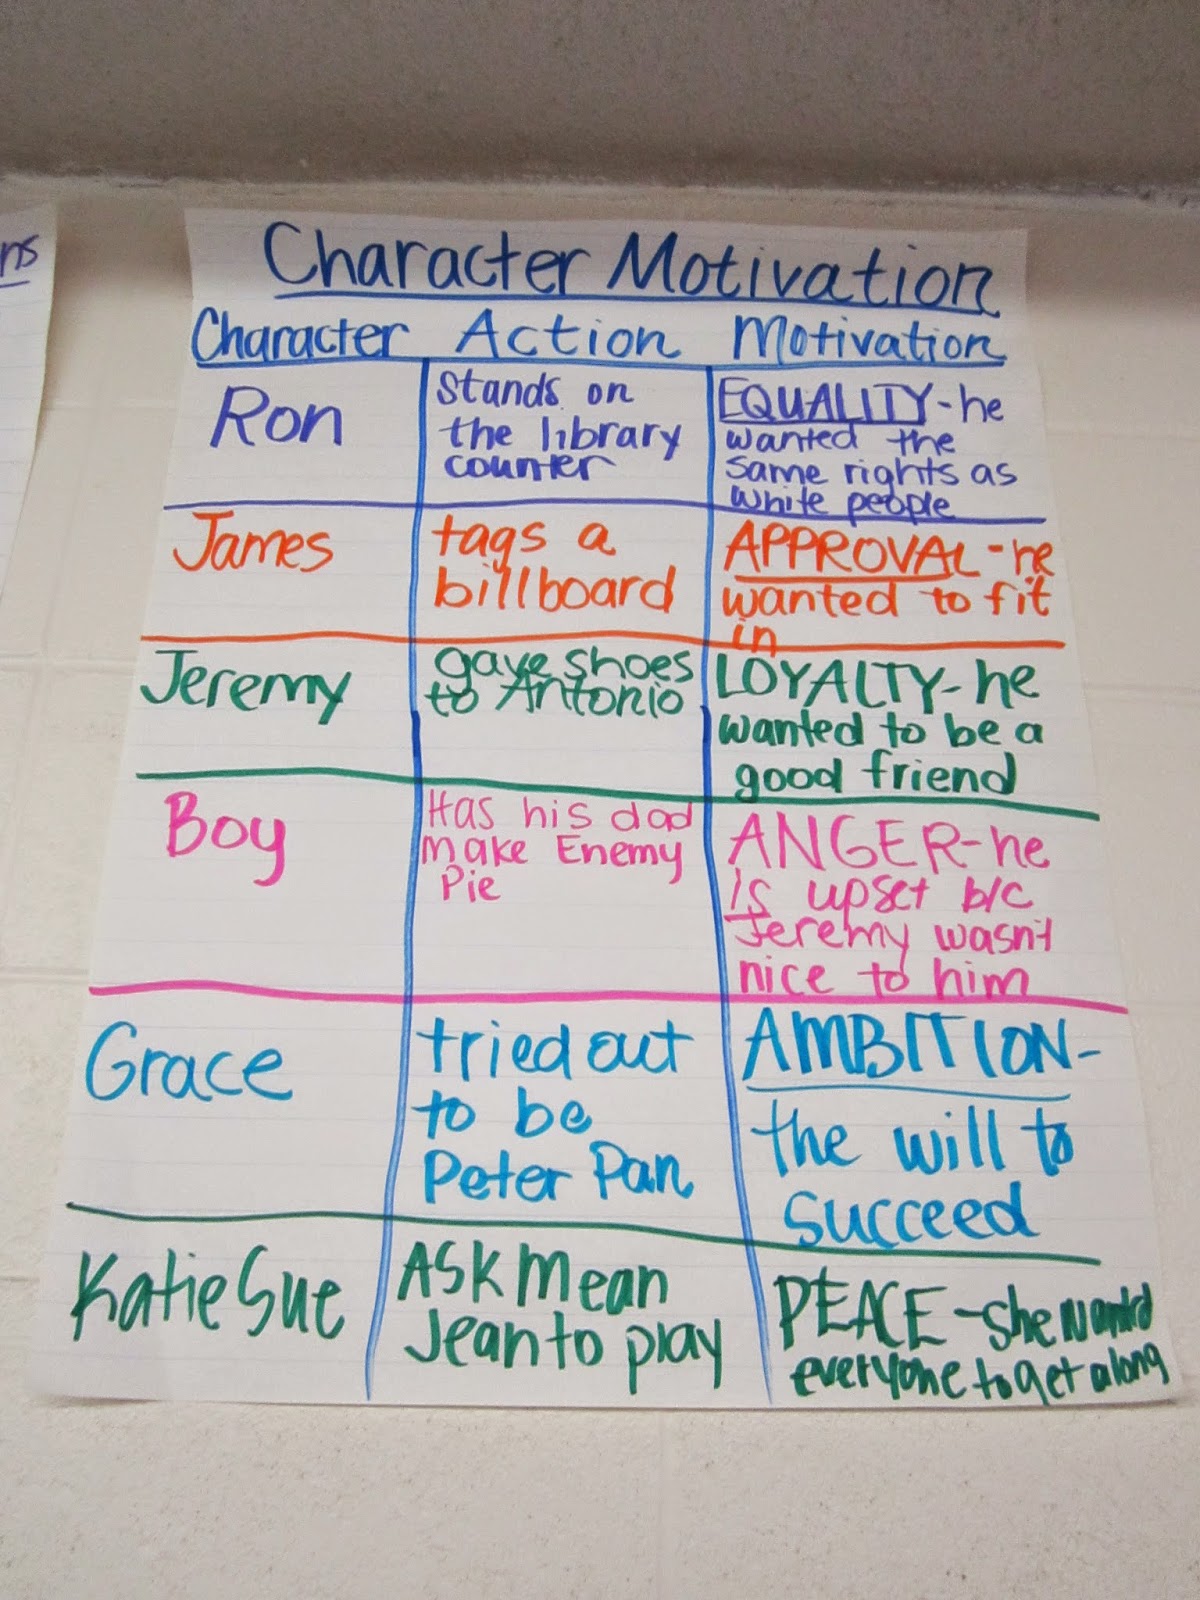 ns
Character Motivation
Character Action Motivation
Ron
Stands on
the library
counter
EQUALITY-he
wanted the
same rights as
white people
James
tags a
billboard
APPROVAL-he
wanted to fit
in
Jeremy
gave shoes
to Antonio
LOYALTY-he
wanted to be a
good friend
Boy
Has his dad
make Enemy
Pie
ANGER-he
is upset b/c
Jeremy wasn't
nice to him
Grace
tried out
to be
Peter Pan
AMBITION-
the will to
succeed
Katie Sue
ASK mean
Jean to play
PEACE-she wanted
everyone to get along